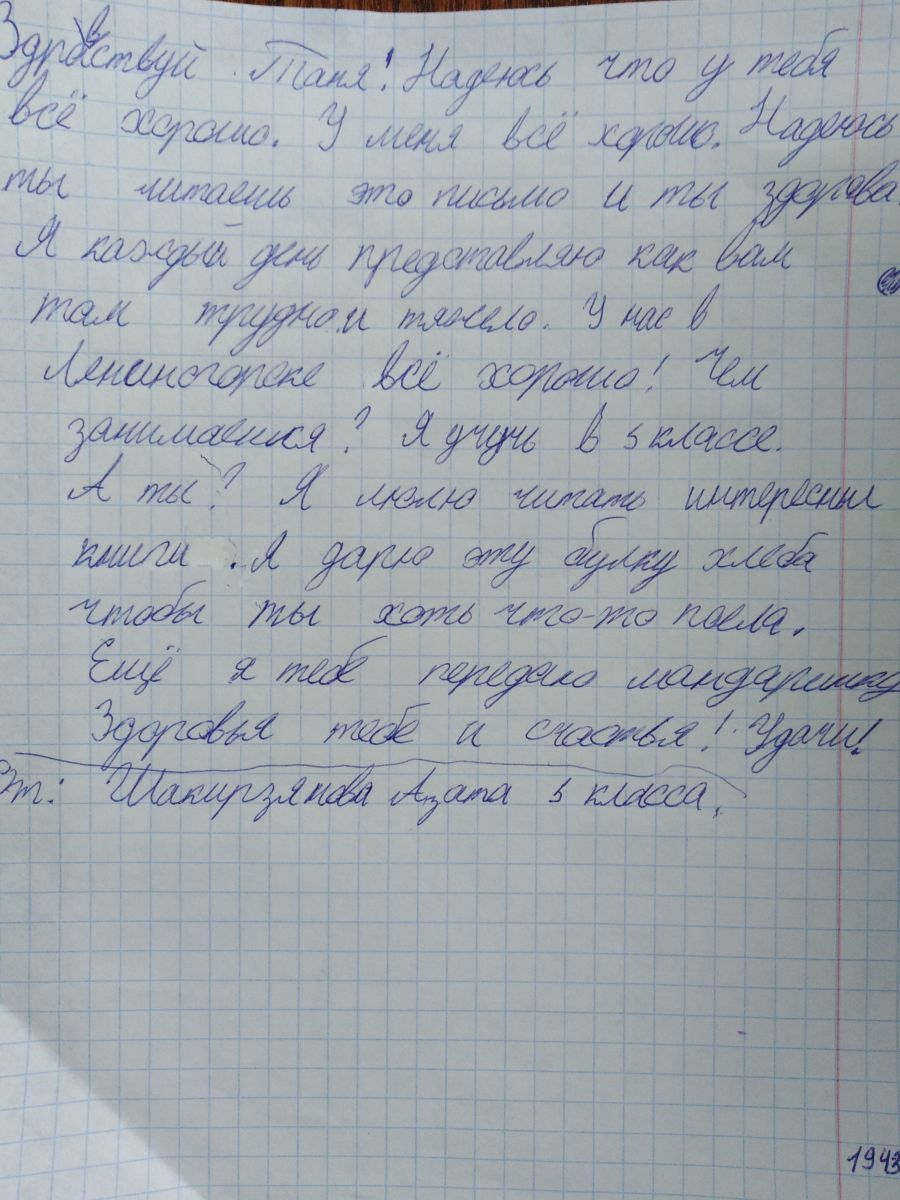 Здравствуй Таня! Надеюсь что у тебя
всё хорошо. У меня всё хорошо. Надеюсь
ты читаешь это письмо и ты здорова.
Я каждый день представляю как вам
там трудно и тяжело. У нас в
Лениногорске всё хорошо! Чем
занимаешся? Я учусь в 5 классе.
А ты? Я люлю читать интересныи
книги . Я дарю эту булку хлеба
чтобы ты хоть что-то поела.
Ещё я тебе передаю мандаринку
Здоровья тебе и счастья! Удачи!
От: Шакирзянова Азата 5 класса.
1943